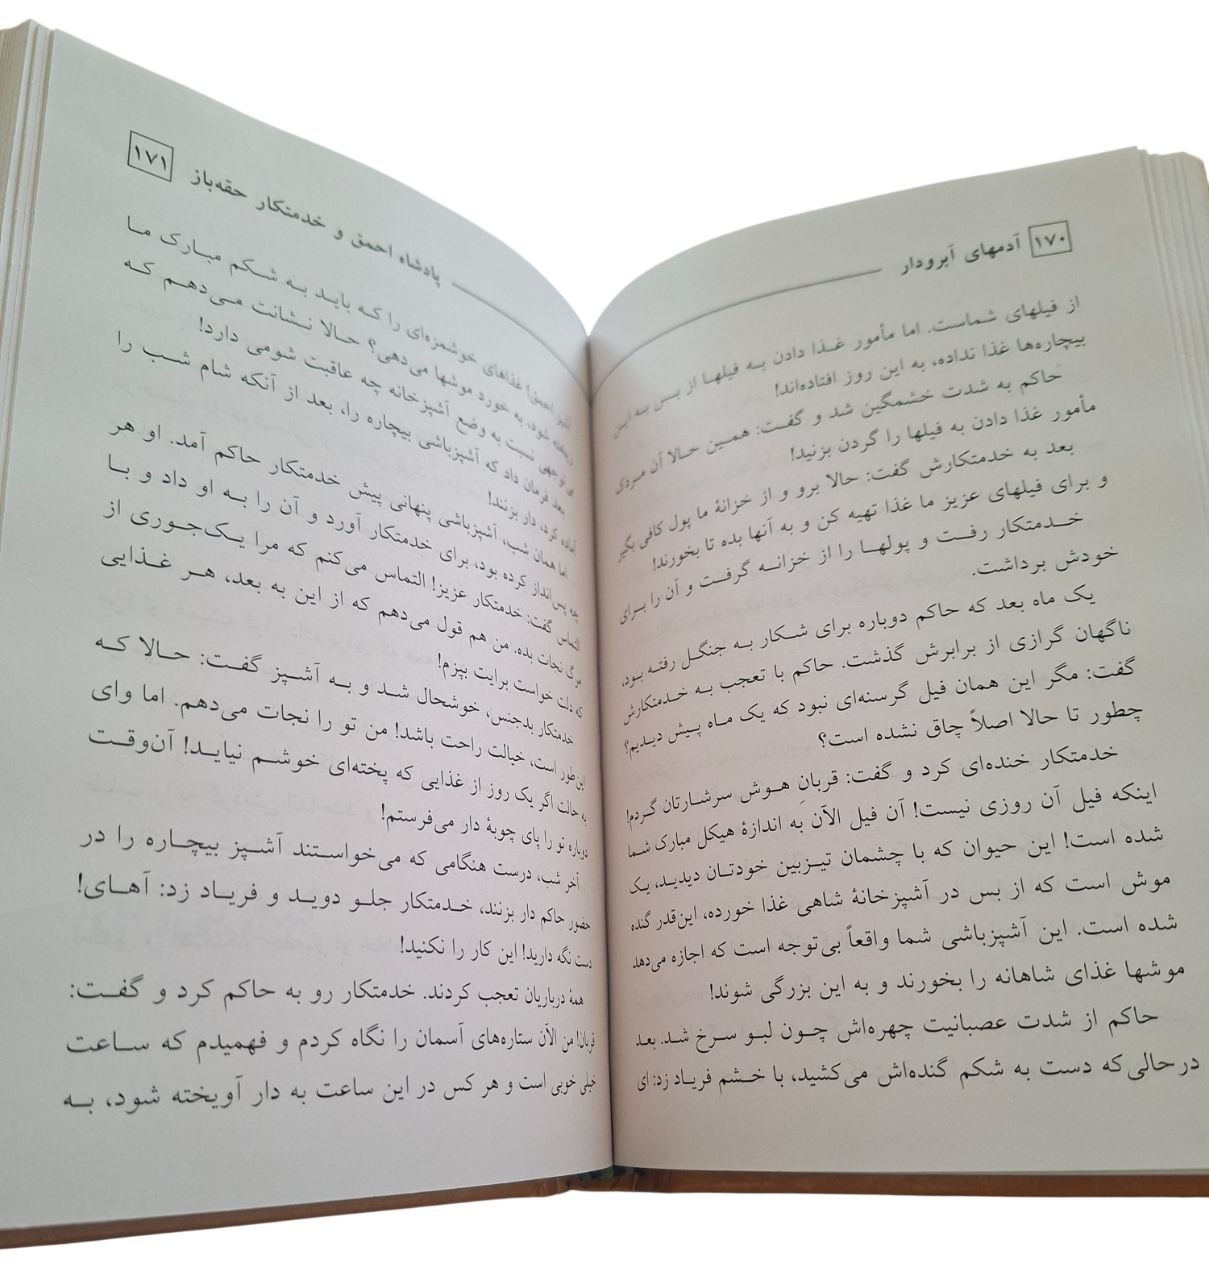 ۱۷۰ آدمهای آبرودار
از فیلهای شماست. اما مأمور غذا دادن به فیلها از بس به این
بیچاره‌ها غذا نداده، به این روز افتاده‌اند!
حاکم به شدت خشمگین شد و گفت: همین حالا آن مردک
مأمور غذا دادن به فیلها را گردن بزنید!
بعد به خدمتکارش گفت: حالا برو و از خزانهٔ ما پول کافی بگیر
و برای فیلهای عزیز ما غذا تهیه کن و به آنها بده تا بخورند!
خدمتکار رفت و پولها را از خزانه گرفت و آن را برای
خودش برداشت.
یک ماه بعد که حاکم دوباره برای شکار به جنگل رفته بود،
ناگهان گرازی از برابرش گذشت. حاکم با تعجب به خدمتکارش
گفت: مگر این همان فیل گرسنه‌ای نبود که یک ماه پیش دیدیم؟
چطور تا حالا اصلاً چاق نشده است؟
خدمتکار خنده‌ای کرد و گفت: قربانِ هوش سرشارتان گردم!
اینکه فیل آن روزی نیست! آن فیل الآن به اندازهٔ هیکل مبارک شما
شده است! این حیوان که با چشمان تیزبین خودتان دیدید، یک
موش است که از بس در آشپزخانهٔ شاهی غذا خورده، این‌قدر گنده
شده است. این آشپزباشی شما واقعاً بی‌توجه است که اجازه می‌دهد
موشها غذای شاهانه را بخورند و به این بزرگی شوند!
حاکم از شدت عصبانیت چهره‌اش چون لبو سرخ شد. بعد
درحالی‌که دست به شکم گنده‌اش می‌کشید، با خشم فریاد زد: ای
پادشاه احمق و خدمتکار حقه‌باز ۱۷۱
آشپز احمق! غذاهای خوشمزه‌ای را که باید به شکم مبارک ما
ریخته شود، به خورد موشها می‌دهی؟ حالا نشانت می‌دهم که
بی‌توجهی نسبت به وضع آشپزخانه چه عاقبت شومی دارد!
بعد فرمان داد که آشپزباشی بیچاره را، بعد از آنکه شام شب را
آماده کرد، دار بزنند!
اما همان شب، آشپزباشی پنهانی پیش خدمتکار حاکم آمد. او هر
چه پس‌انداز کرده بود، برای خدمتکار آورد و آن را به او داد و با
التماس گفت: خدمتکار عزیز! التماس می‌کنم که مرا یک‌جوری از
مرگ نجات بده. من هم قول می‌دهم که از این به بعد، هر غذایی
که دلت خواست برایت بپزم!
خدمتکار بدجنس، خوشحال شد و به آشپز گفت: حالا که
این‌طور است، خیالت راحت باشد! من تو را نجات می‌دهم. اما وای
به حالت اگر یک روز از غذایی که پخته‌ای خوشم نیاید! آن‌وقت
دوباره تو را پای چوبهٔ دار می‌فرستم!
آخر شب، درست هنگامی که می‌خواستند آشپز بیچاره را در
حضور حاکم دار بزنند، خدمتکار جلو دوید و فریاد زد: آهای!
دست نگه دارید! این کار را نکنید!
همهٔ درباریان تعجب کردند. خدمتکار رو به حاکم کرد و گفت:
قربان! من الآن ستاره‌های آسمان را نگاه کردم و فهمیدم که ساعت
خیلی خوبی است و هر کس در این ساعت به دار آویخته شود، به